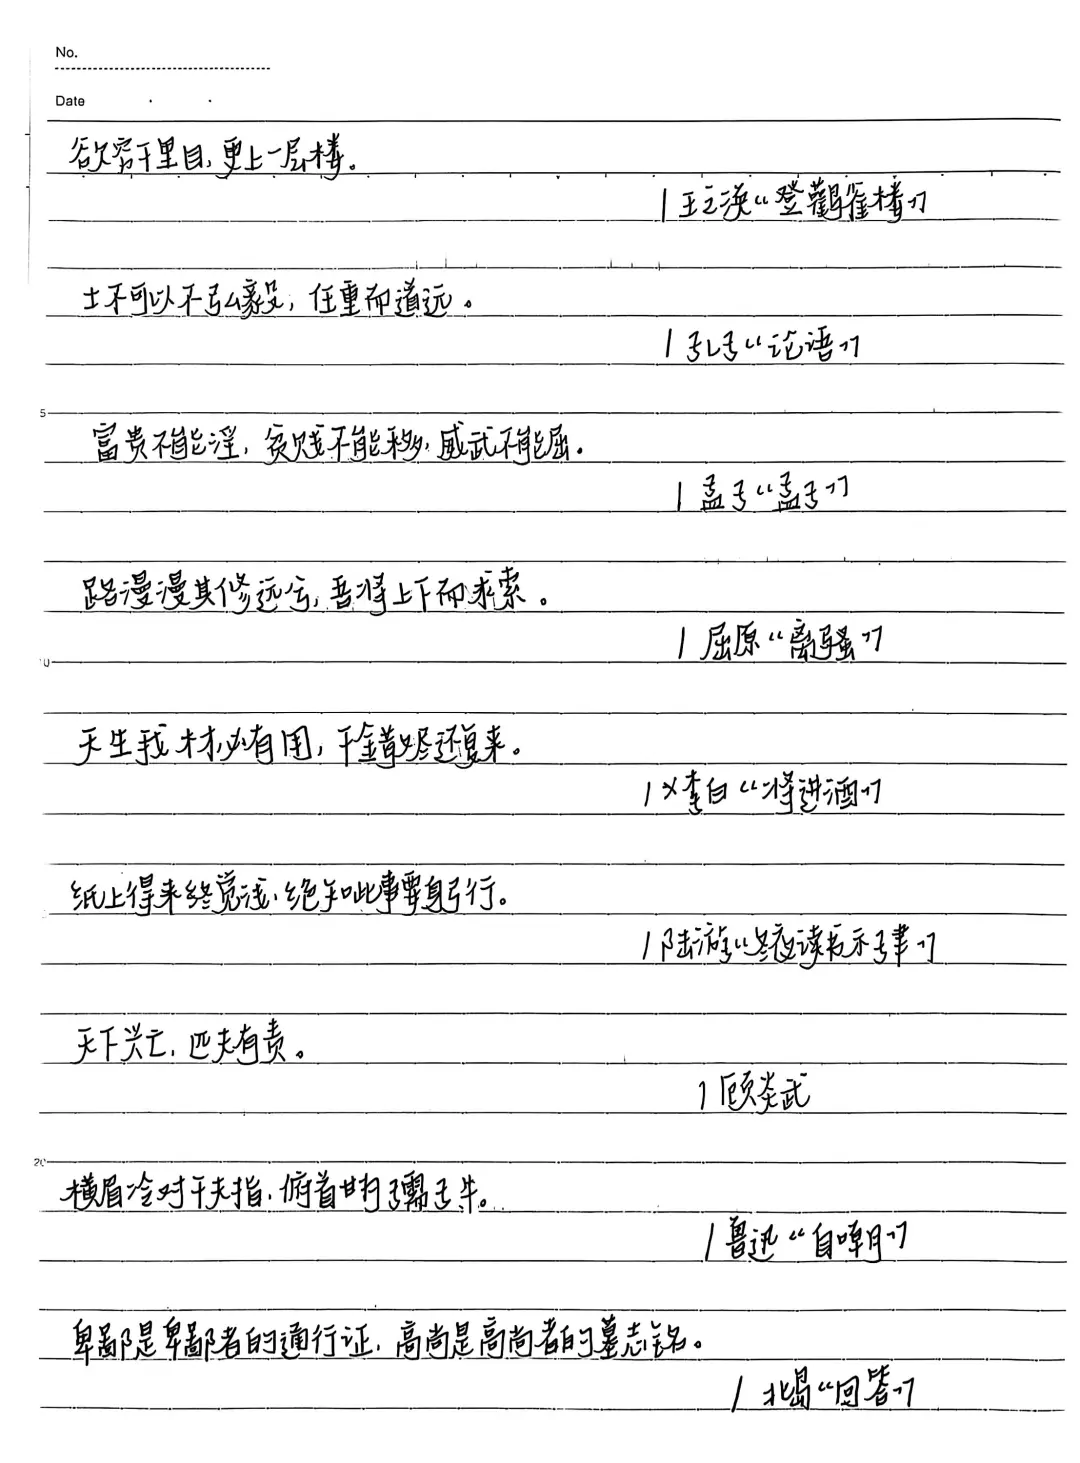 No.
Date
欲穷千里目,更上一层楼。
|王之涣“登觀雀楼”
士不可以不弘毅,任重而道远。
|孔子“论语”
5
富贵不能淫,贫贱不能移,威武不能屈。
|孟子“孟子”
路漫漫其修远兮,吾将上下而求索。
|屈原“离骚”
10
天生我材必有用,千金散尽还复来。
|李白“将进酒”
纸上得来终觉浅,绝知此事要躬行。
|陆游“冬夜读书示子聿”
天下兴亡,匹夫有责。
|顾炎武
20
横眉冷对千夫指,俯首甘为孺子牛。
|鲁迅“自嘲”
卑鄙是卑鄙者的通行证,高尚是高尚者的墓志铭。
|北岛“回答”